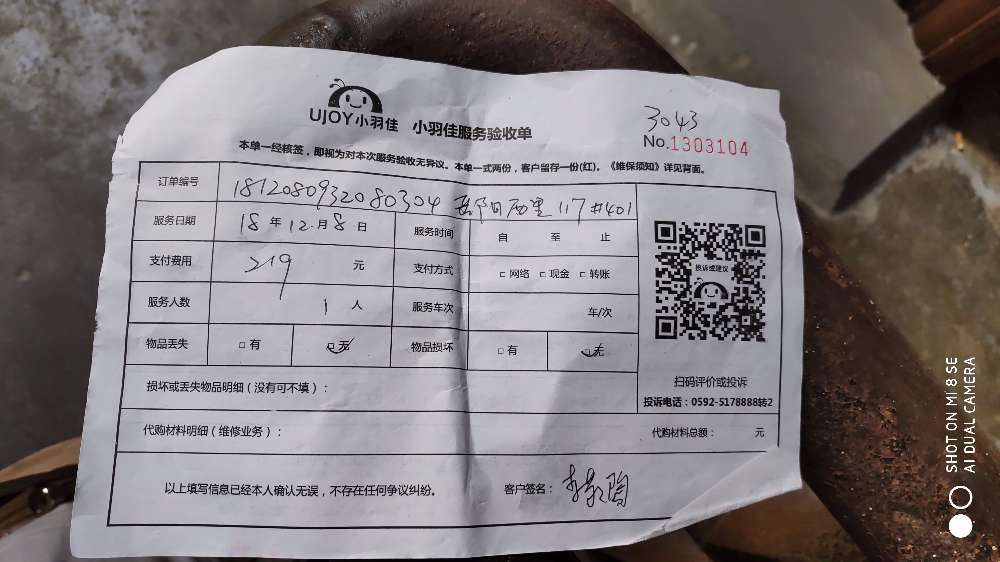 UJOY小羽佳 小羽佳服务验收单
3043
No.1303104
本单一经核签，即视为对本次服务验收无异议。本单一式两份，客户留存一份(红)。《维保须知》详见背面。
订单编号 1812080932080304 117#401
服务日期 18年12月8日 服务时间 自 至 止
支付费用 219 元 支付方式 □网络 □现金 □转账
服务人数 1人 服务车次 车/次
物品丢失 □有 □无 物品损坏 □有 □无
投诉或建议
扫码评价或投诉
投诉电话：0592-5178888转2
损坏或丢失物品明细（没有可不填）：
代购材料明细（维修业务）： 代购材料总额： 元
以上填写信息已经本人确认无误，不存在任何争议纠纷。 客户签名：
SHOT ON MI 8 SE
AI DUAL CAMERA